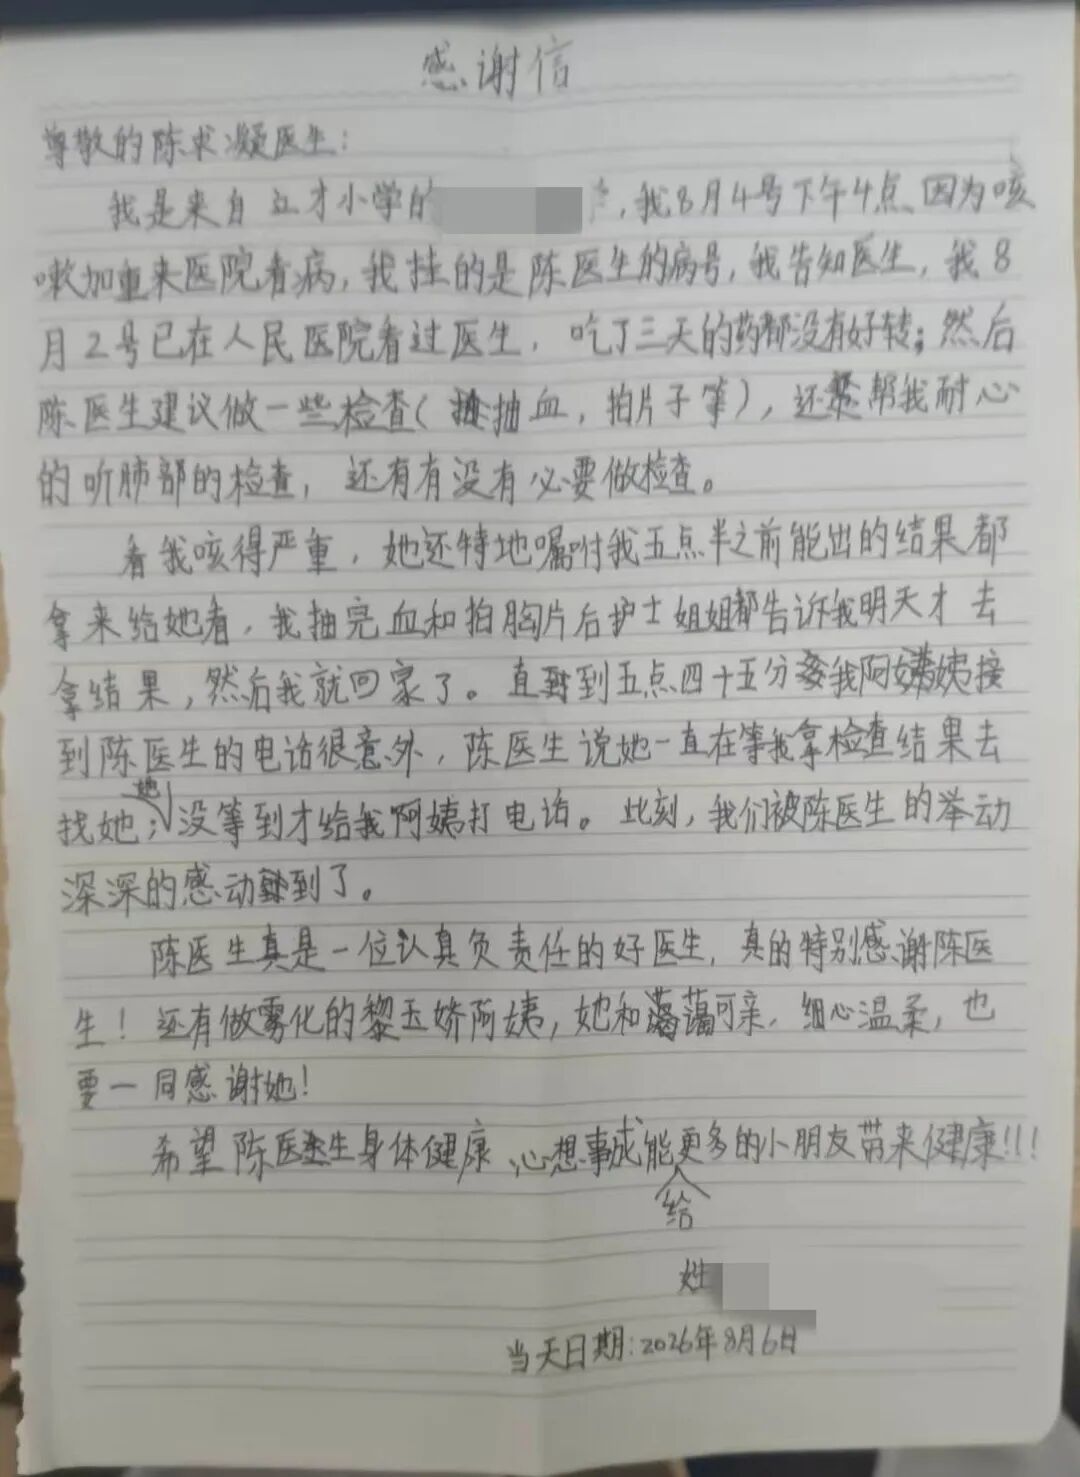 感谢信
尊敬的陈求凝医生：
我是来自立才小学的，我8月4号下午4点因为咳
嗽加重来医院看病，我挂的是陈医生的病号，我告知医生，我8
月2号已在人民医院看过医生，吃了三天的药都没有好转；然后
陈医生建议做一些检查（抽血，拍片子等），还帮我耐心
的听肺部的检查，还有有没有必要做检查。
看我咳得严重，她还特地嘱咐我五点半之前能出的结果都
拿来给她看，我抽完血和拍胸片后护士姐姐都告诉我明天才去
拿结果，然后我就回家了。直到五点四十五分我阿姨接
到陈医生的电话很意外，陈医生说她一直在等我拿检查结果去
找她；她没等到才给我阿姨打电话。此刻，我们被陈医生的举动
深深的感动到了。
陈医生真是一位认真负责任的好医生，真的特别感谢陈医
生！还有做雾化的黎玉娇阿姨，她和蔼可亲，细心温柔，也
要一同感谢她！
希望陈医生身体健康、心想事成能给更多的小朋友带来健康!!!
姓
当天日期：2026年8月6日